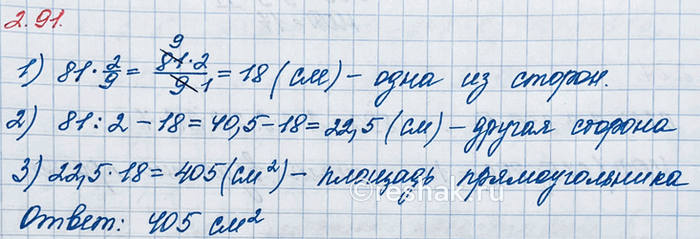 2.91.
1) 81 · 2/9 = 81·2/9 = 18 (см) – одна из сторон.
9
1
2) 81 : 2 – 18 = 40,5 – 18 = 22,5 (см) – другая сторона
3) 22,5 · 18 = 405 (см²) – площадь прямоугольника
Ответ: 405 см²
©reshak.ru